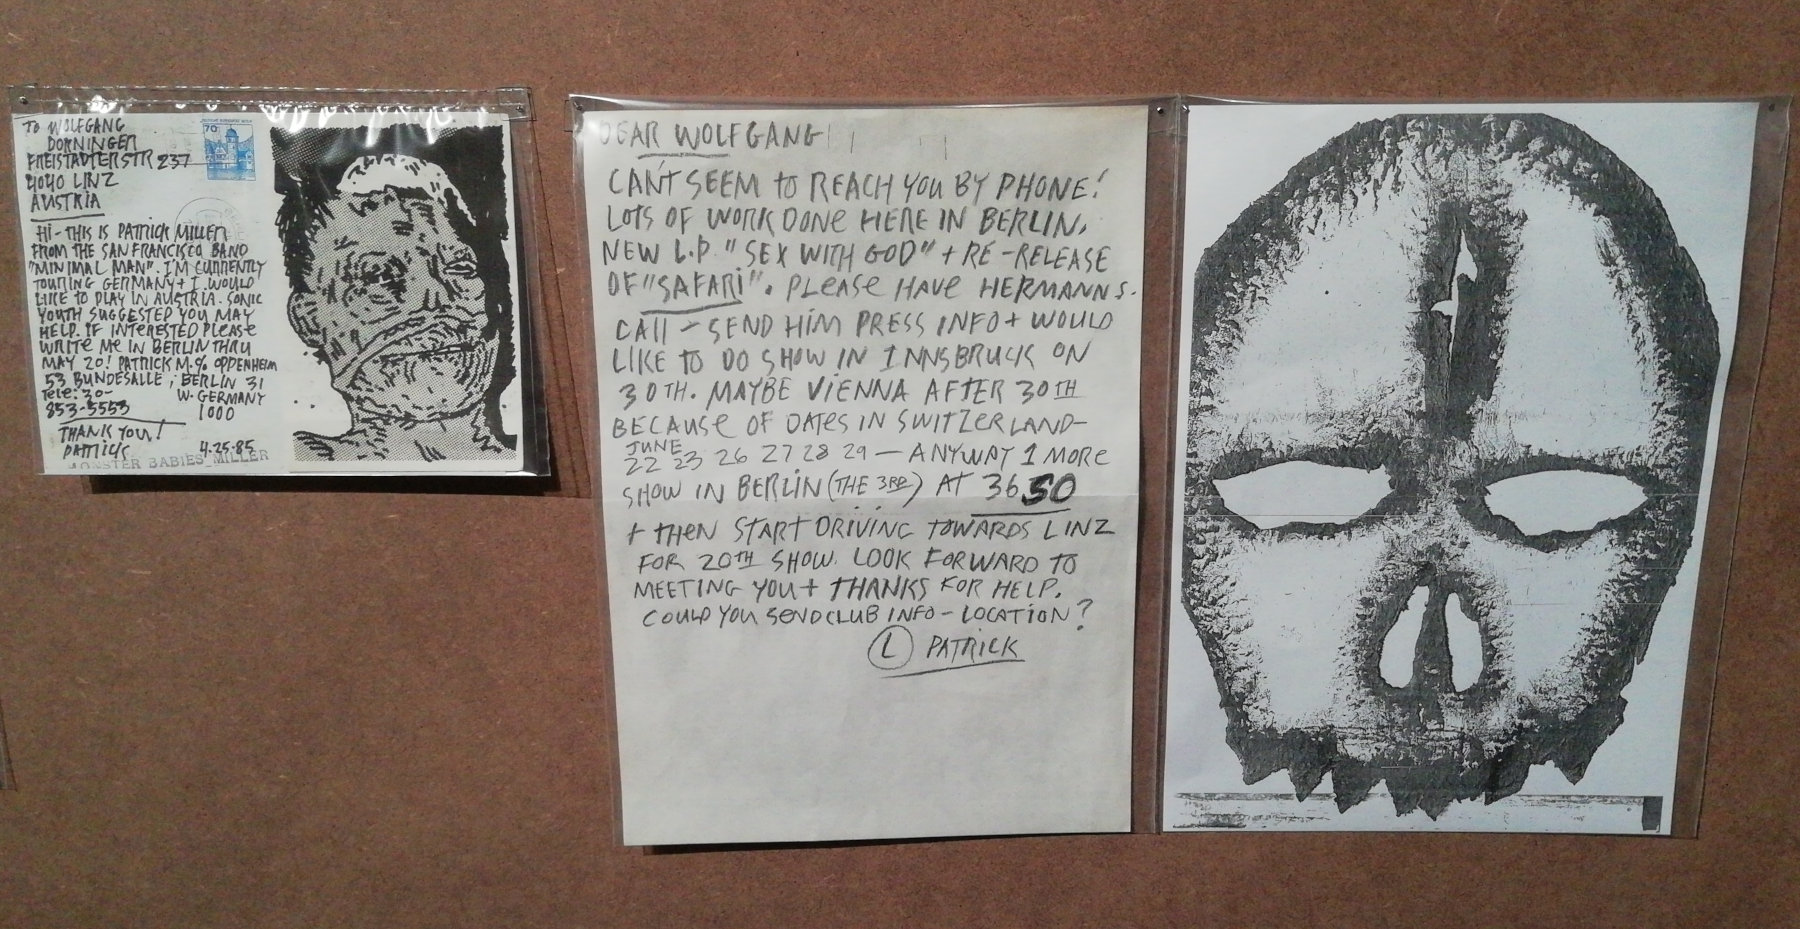 TO WOLFGANG
DORNINGER
FREISTÄDTERSTR 237
4040 LINZ
AUSTRIA
70
HI - THIS IS PATRICK MILLER
FROM THE SAN FRANCISCO BAND
"MINIMAL MAN". I'M CURRENTLY
TOURING GERMANY + I WOULD
LIKE TO PLAY IN AUSTRIA. SONIC
YOUTH SUGGESTED YOU MAY
HELP. IF INTERESTED PLEASE
WRITE ME IN BERLIN THRU
MAY 20! PATRICK M. % OPPENHEIM
53 BUNDESALLE, BERLIN 31
TELE: 30- W. GERMANY
853-5553 1000
THANK YOU!
PATRICK 4-25-85
MONSTER BABIES MILLER
DEAR WOLFGANG
CAN'T SEEM TO REACH YOU BY PHONE!
LOTS OF WORK DONE HERE IN BERLIN,
NEW L.P. "SEX WITH GOD" + RE-RELEASE
OF "SAFARI". PLEASE HAVE HERMANN S.
CALL - SEND HIM PRESS INFO + WOULD
LIKE TO DO SHOW IN INNSBRUCK ON
30TH. MAYBE VIENNA AFTER 30TH
BECAUSE OF DATES IN SWITZERLAND -
JUNE
22 23 26 27 28 29 - ANYWAY 1 MORE
SHOW IN BERLIN (THE 3RD) AT 36.50
+ THEN START DRIVING TOWARDS LINZ
FOR 20TH SHOW. LOOK FORWARD TO
MEETING YOU + THANKS FOR HELP.
COULD YOU SEND CLUB INFO - LOCATION?
L PATRICK